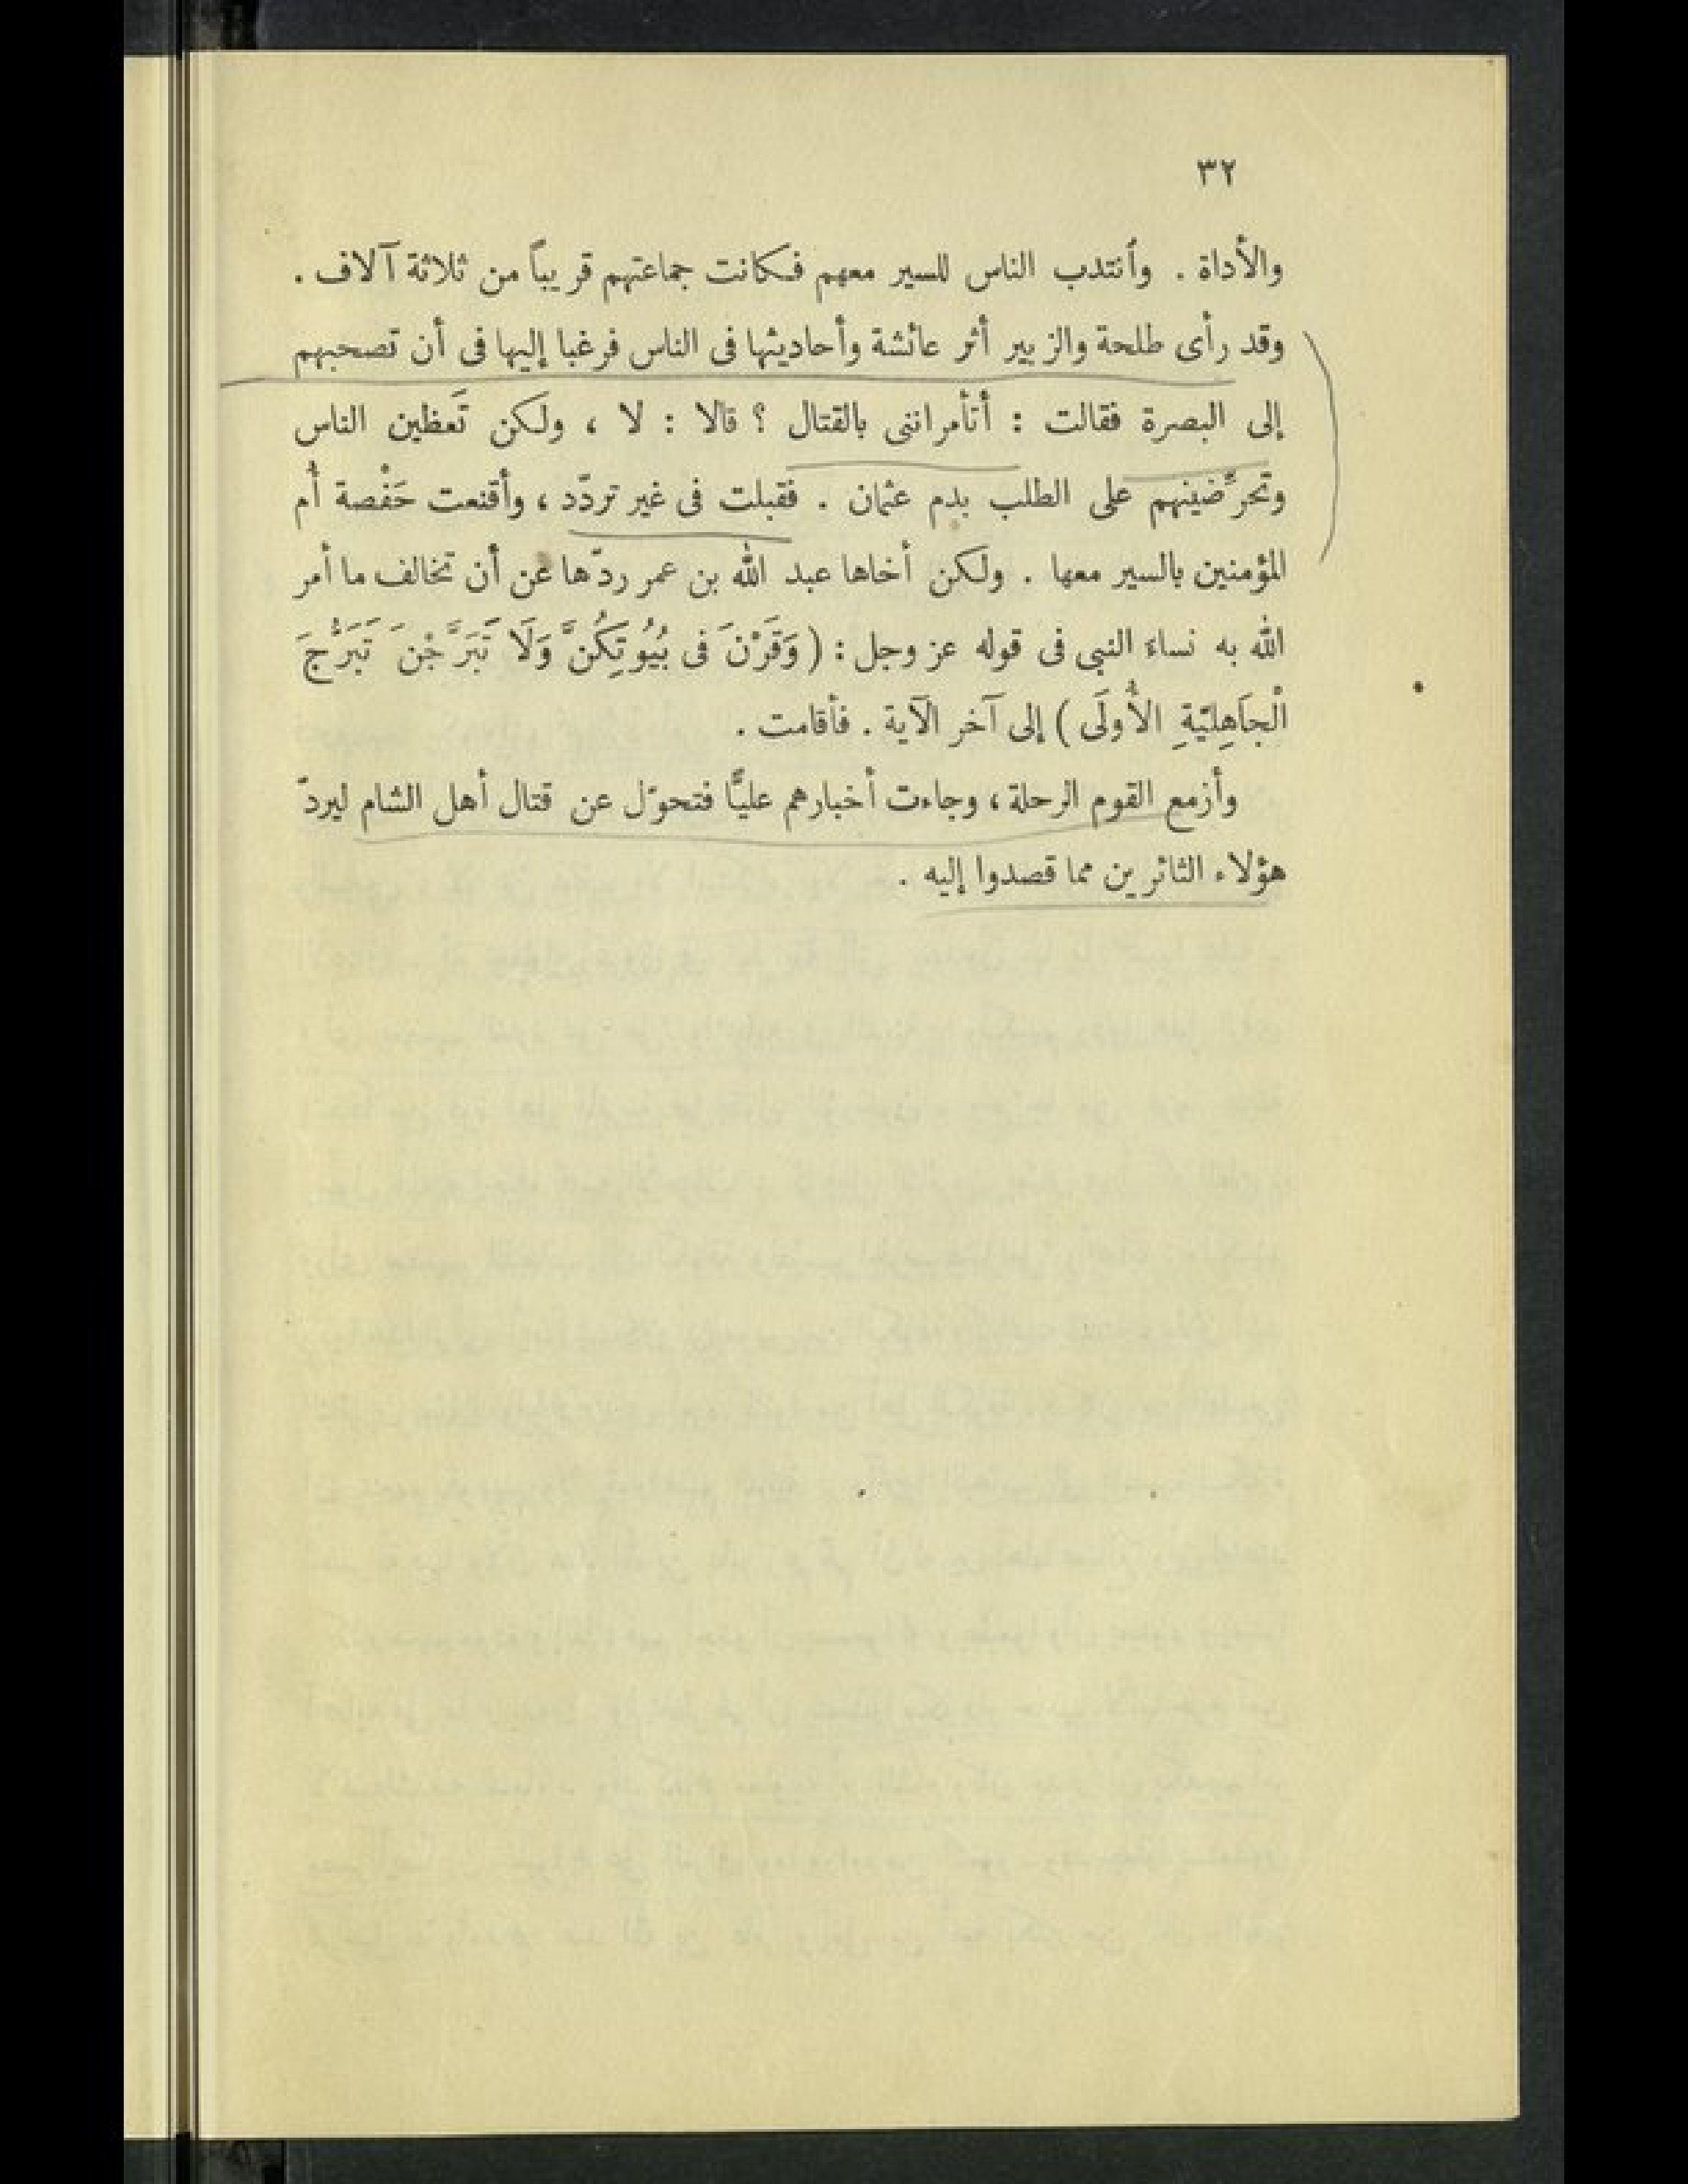 ٣٢
والأداة . وأنتدب الناس للسير معهم فكانت جماعتهم قريباً من ثلاثة آلاف .
وقد رأى طلحة والزبير أثر عائشة وأحاديثها فى الناس فرغبا إليها فى أن تصحبهم
إلى البصرة فقالت : أتأمراننى بالقتال ؟ قالا : لا ، ولكن تَعظين الناس
وتحرّضينهم على الطلب بدم عثمان . فقبلت فى غير تردّد ، وأقنعت حَفْصة أُم
المؤمنين بالسير معها . ولكن أخاها عبد الله بن عمر ردّها عن أن تخالف ما أمر
الله به نساءَ النبى فى قوله عز وجل : ( وَقَرْنَ فى بُيُوتِكُنَّ وَلَا تَبَرَّجْنَ تَبَرُّجَ
الْجَاهِلِيّةِ الأُولَى ) إلى آخر الآية . فأقامت .
وأزمع القوم الرحلة ، وجاءت أخبارهم عليًّا فتحوّل عن قتال أهل الشام ليردّ
هؤلاء الثائرين مما قصدوا إليه .